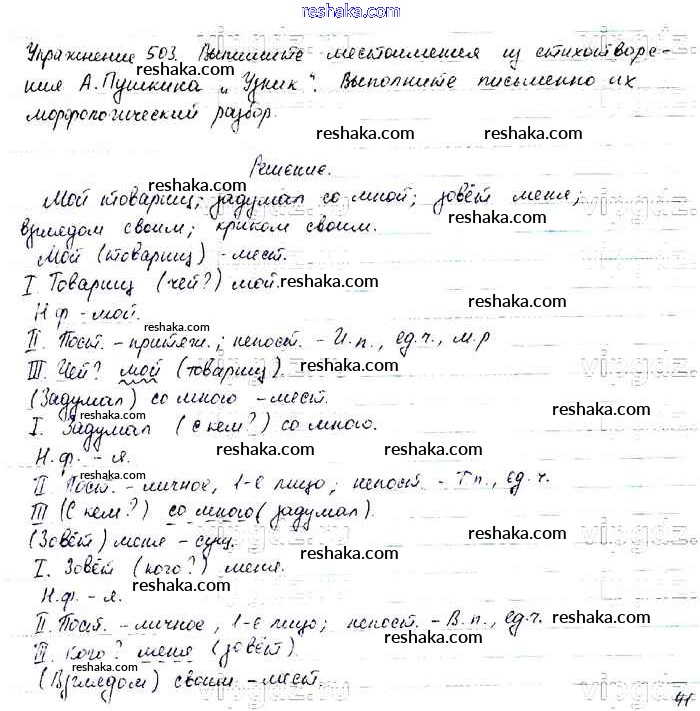 reshaka.com
Упражнение 503. Выпишите местоимения из стихотворе-
ния А. Пушкина „Узник“. Выполните письменно их
морфологический разбор.
reshaka.com
Решение.
reshaka.com
Мой товарищ; задумал со мной; зовёт меня;
reshaka.com
взглядом своим; криком своим.
Мой (товарищ) - мест.
I Товарищ (чей?) мой. reshaka.com
Н.ф - мой.
reshaka.com
II. Пост. - притяж.; непост. - И.п., ед.ч., м.р
III. Чей? мой (товарищ). reshaka.com
(Задумал) со мною - мест. reshaka.com
reshaka.com
I. Задумал (с кем?) со мною.
Н.ф. - я. reshaka.com reshaka.com
reshaka.com
II Пост. - личное, 1-е лицо; непост. - Т п., ед.ч.
III (С кем?) со мною (задумал). reshaka.com
(Зовёт) меня - сущ. reshaka.com
I. Зовёт (кого?) меня. reshaka.com
Н.ф. - я.
II. Пост. - личное, 1-е лицо; непост. - В.п., ед.ч. reshaka.com
III. Кого? меня (зовёт). reshaka.com
reshaka.com
(Взглядом) своим - мест.
41